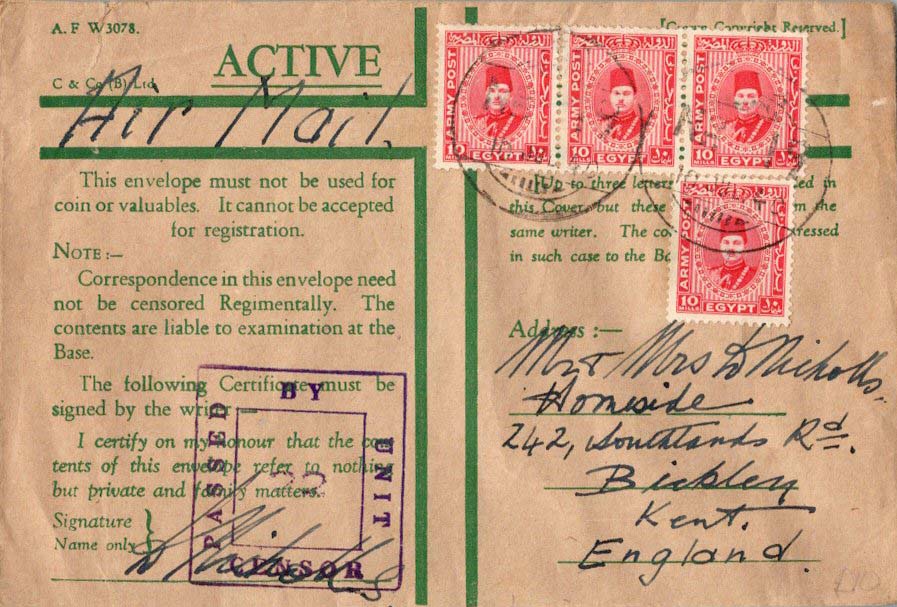 A. F W3078.
[Crown Copyright Reserved.]
ACTIVE
C & Co (B) Ltd
Air Mail.
ARMY POST
10 MILLS
EGYPT
ARMY POST
10 MILLS
EGYPT
ARMY POST
10 MILLS
EGYPT
ARMY POST
10 MILLS
EGYPT
This envelope must not be used for
coin or valuables. It cannot be accepted
for registration.
NOTE :—
Correspondence in this envelope need
not be censored Regimentally. The
contents are liable to examination at the
Base.
The following Certificate must be
signed by the writer —
I certify on my honour that the con
tents of this envelope refer to nothing
but private and family matters.
Signature
Name only
PASSED BY UNIT CENSOR
22
to three letters
ed in
this Cover but these
m the
same writer. The co
ressed
in such case to the Ba
Address :—
Mr & Mrs D Nicholls.
Homeside
242, Southlands Rd.
Bickley
Kent.
England.
£10